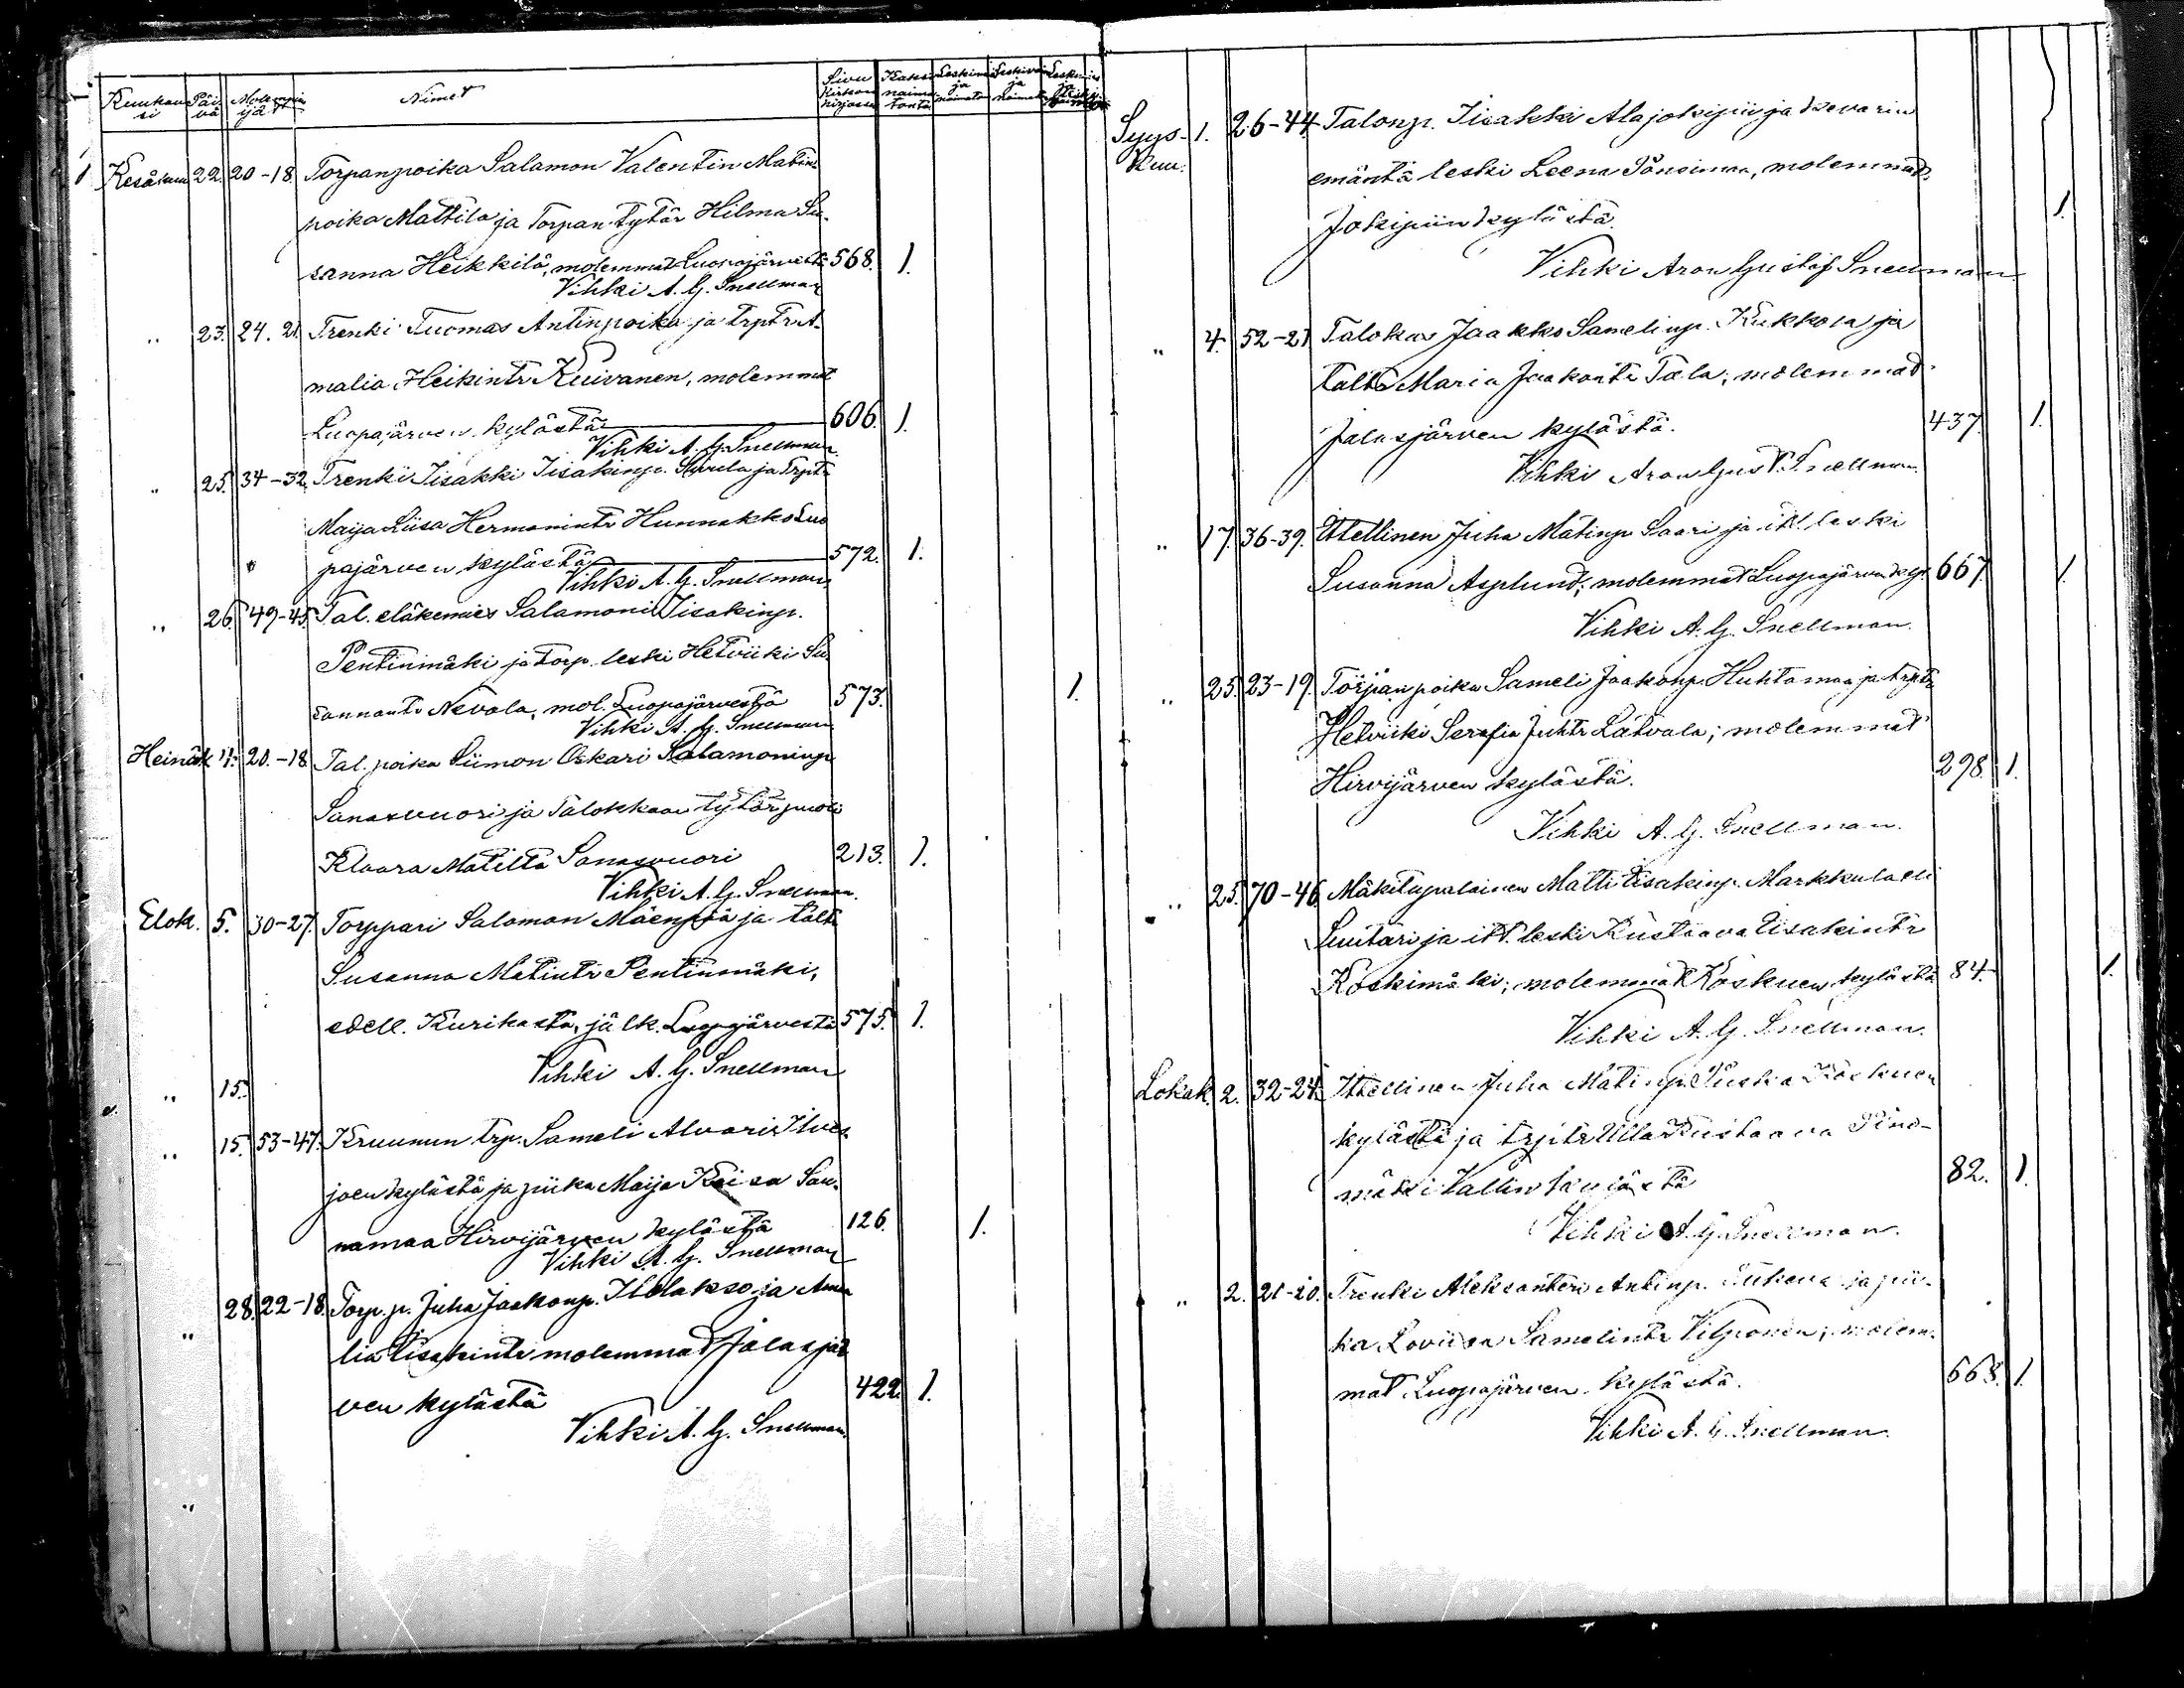 Kuukausi Päivä Molempain ijät Nimet Sivu Kirkonkirjassa Kaksi naimatonta Leskimies ja naimaton Leskivaimo ja naimaton Leskimies ja leskivaimo
1 Kesäkuu 22. 20-18. Torpanpoika Salamon Valentin Matin
poika Mattila ja Torpan tytär Hilma Su-
sanna Heikkilä, molemmat Luopajärvestä 568. 1.
Vihki A. G. Snellman
" 23. 24. 21. Trenki Tuomas Antinpoika ja trptr A-
malia Heikintr Kuivanen, molemmat
Luopajärven kylästä 606. 1.
Vihki A. G. Snellman.
" 25. 34-32. Trenki Iisakki Iisakinp. ja trptr
Maija Liisa Hermanintr Hunnakko Luo
pajärven kylästä 572. 1.
Vihki A. G. Snellman.
" 26. 49-45. Tal. eläkemies Salamoni Iisakinp.
Pentinmäki ja torp. leski Hetviiki Su-
sannantr Nevala, mol. Luopajärvestä 573. 1.
Vihki A. G. Snellman
Heinäk. 4. 20.-18. Tal. poika Siimon Oskari Salamoninp
Sanasvuori ja Talokkaan tytärpuoli
Klaara Matilta Sanasvuori 213. 1.
Vihki A. G. Snellman.
Elok. 5. 30-27. Torppari Salomon Mäenpää ja taltr
Susanna Matintr Pentinmäki,
edell. Kurikasta, jälk. Luopajärvestä 575. 1.
Vihki A. G. Snellman
" 15.
" 15. 53-47. Kruunun trp. Sameli Alvari Ilves-
joen kylästä ja piika Maija Kaisa San-
namaa Hirvijärven kylästä 126. 1.
Vihki A. G. Snellman
" 28. 22-18. Torp. p. Juha Jaakonp. Ylilakso ja Ama
lia Iisakintr molemmat Jalasjär
ven kylästä 422. 1.
Vihki A. G. Snellman.
"
Syys-Kuu. 1. 26-44. Talonp. Iisakki Alajokipii ja
emäntä leski Leena molemmat
Jokipiin kylästä. 1.
Vihki Aron Gustaf Snellman
" 4. 52-21 Talokas Jaakko Samelinp. Kukkola ja
taltr Maria Jaakontr Tala, molemmat
Jalasjärven kylästä. 437. 1.
Vihki Aron Gust. Snellman.
" 17. 36-39. Ittellinen Juha Matinp Saari ja itl. leski
Susanna Asplund, molemmat Luopajärven kyl. 667. 1.
Vihki A. G. Snellman.
" 25. 23-19. Torpan poika Sameli Jaakonp. Huhtamaa ja trptr
Hetviiki Serafia Juhtr Latvala; molemmat
Hirvijärven kylästä. 298. 1.
Vihki A. G. Snellman.
" 25. 70-46. Mäkitupalainen Matti Iisakinp. Markkula eli
Suutari ja itl. leski Kustaava Iisakintr
Koskimäki; molemmat Koskuen kylästä 84. 1.
Vihki A. G. Snellman.
Lokak. 2. 32-24. Ittellinen Juha Matinp. Koskuen
kylästä ja trptr Ulla Kustaava Pino-
mäki Vallin kylästä 82. 1.
Vihki A. G. Snellman.
" 2. 21-20. Trenki Aleksanteri Antinp. ja pii-
ka Loviisa Samelintr Vilponen; molem-
mat Luopajärven kylästä. 668. 1.
Vihki A. G. Snellman.